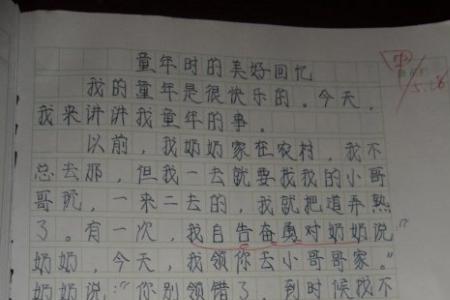 童年时的美好回忆
我的童年是很快乐的。今天，
我来讲讲我童年的事。
以前，我奶奶家在农村，我不
总去那，但我一去就要找我的小哥
哥玩，一来二去的，我就把道弄熟
了。有一次，我自告奋勇对奶奶说“
奶奶，今天，我领你去小哥哥家。”
奶奶说：“你别领错了，到时候找不